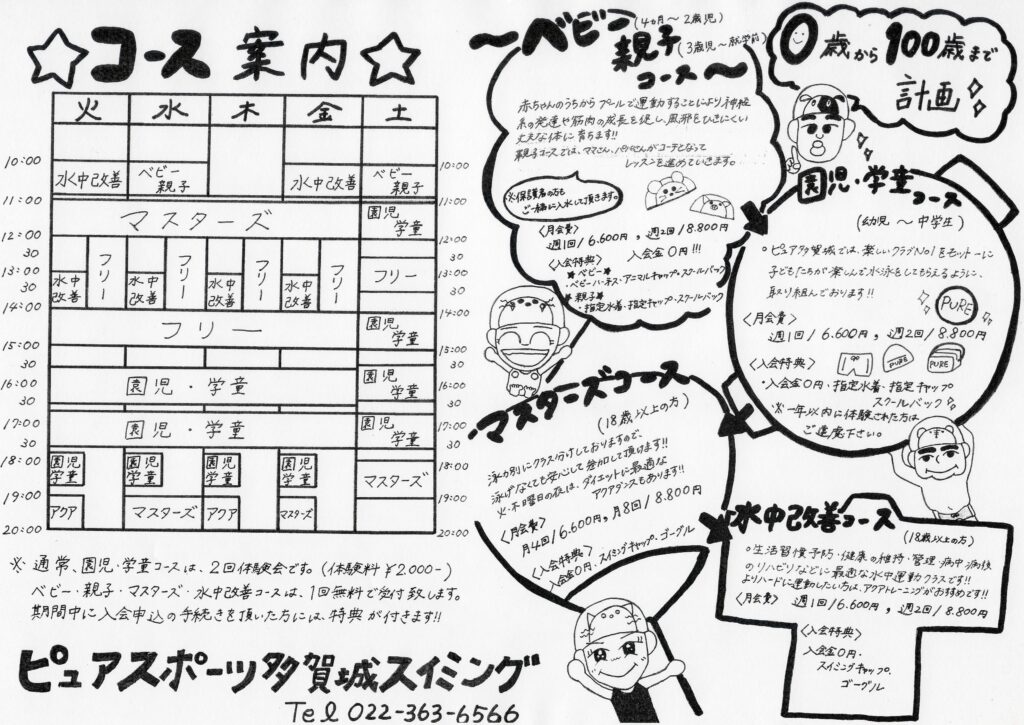 ☆コース案内☆
火 水 木 金 土
10:00
10:00
水中改善
ベビー
親子
水中改善
ベビー
親子
11:00
11:00
マスターズ
園児
学童
12:00
12:00
30
30
13:00
13:00
30
30
14:00
14:00
水中
改善
フリー
水中
改善
フリー
水中
改善
フリー
水中
改善
フリー
フリー
フリー
園児
学童
15:00
15:00
30
30
16:00
16:00
園児・学童
園児
学童
30
30
17:00
17:00
園児・学童
園児
学童
30
30
18:00
18:00
園児
学童
園児
学童
園児
学童
園児
学童
マスターズ
19:00
19:00
アクア
マスターズ
アクア
マスターズ
20:00
20:00
※ 通常、園児・学童コースは、2回体験会です。(体験料¥2,000-)
ベビー・親子・マスターズ・水中改善コースは、1回無料で受付致します。
期間中に入会申込の手続きを頂いた方には、特典が付きます!!
ピュアスポーツ多賀城スイミング
Tel 022-363-6566
〜ベビー(4ヵ月〜2歳児)
親子(3歳児〜就学前)
コース〜
赤ちゃんのうちからプールで運動することにより、神経
系の発達や筋肉の成長を促し、風邪をひきにくい
丈夫な体に育ちます!!
親子コースでは、ママさん、パパさんがコーチとなって
レッスンを進めていきます。
※保護者の方も
ご一緒に入水して頂きます。
〈月会費〉
週1回/6.600円, 週2回/8.800円
〈入会特典〉 入会金0円!!!
ベビー
・ベビーハーネス・アニマルキャップ・スクールバック
親子
・指定水着・指定キャップ・スクールバック
0歳から100歳まで
計画
園児・学童コース
(幼児 〜 中学生)
○ピュア多賀城では、楽しいクラブNo1をモットーに
子どもたちが楽しんで水泳をしてもらえるように、
取り組んでおります!!
PURE
〈月会費〉
週1回/6.600円, 週2回/8.800円
〈入会特典〉
PURE
PURE
・入会金0円・指定水着・指定キャップ
スクールバック
※一年以内に体験された方は
ご遠慮下さい。
マスターズコース
(18歳以上の方)
泳力別にクラス分けしておりますので、
泳げなくても安心して参加して頂けます!!
火・木曜日の夜は、ダイエットに最適な
アクアダンスもあります!!
〈月会費〉
月4回/6.600円, 月8回/8.800円
〈入会特典〉
入会金0円・スイミングキャップ・ゴーグル
水中改善コース
(18歳以上の方)
○生活習慣予防・健康の維持・管理・病中・病後
のリハビリなどに最適な水中運動クラスです!!
よりハードに運動したい方は、アクアトレーニングがおすすめです!!
〈月会費〉 週1回/6.600円, 週2回/8.800円
〈入会特典〉
入会金0円・
スイミングキャップ・
ゴーグル